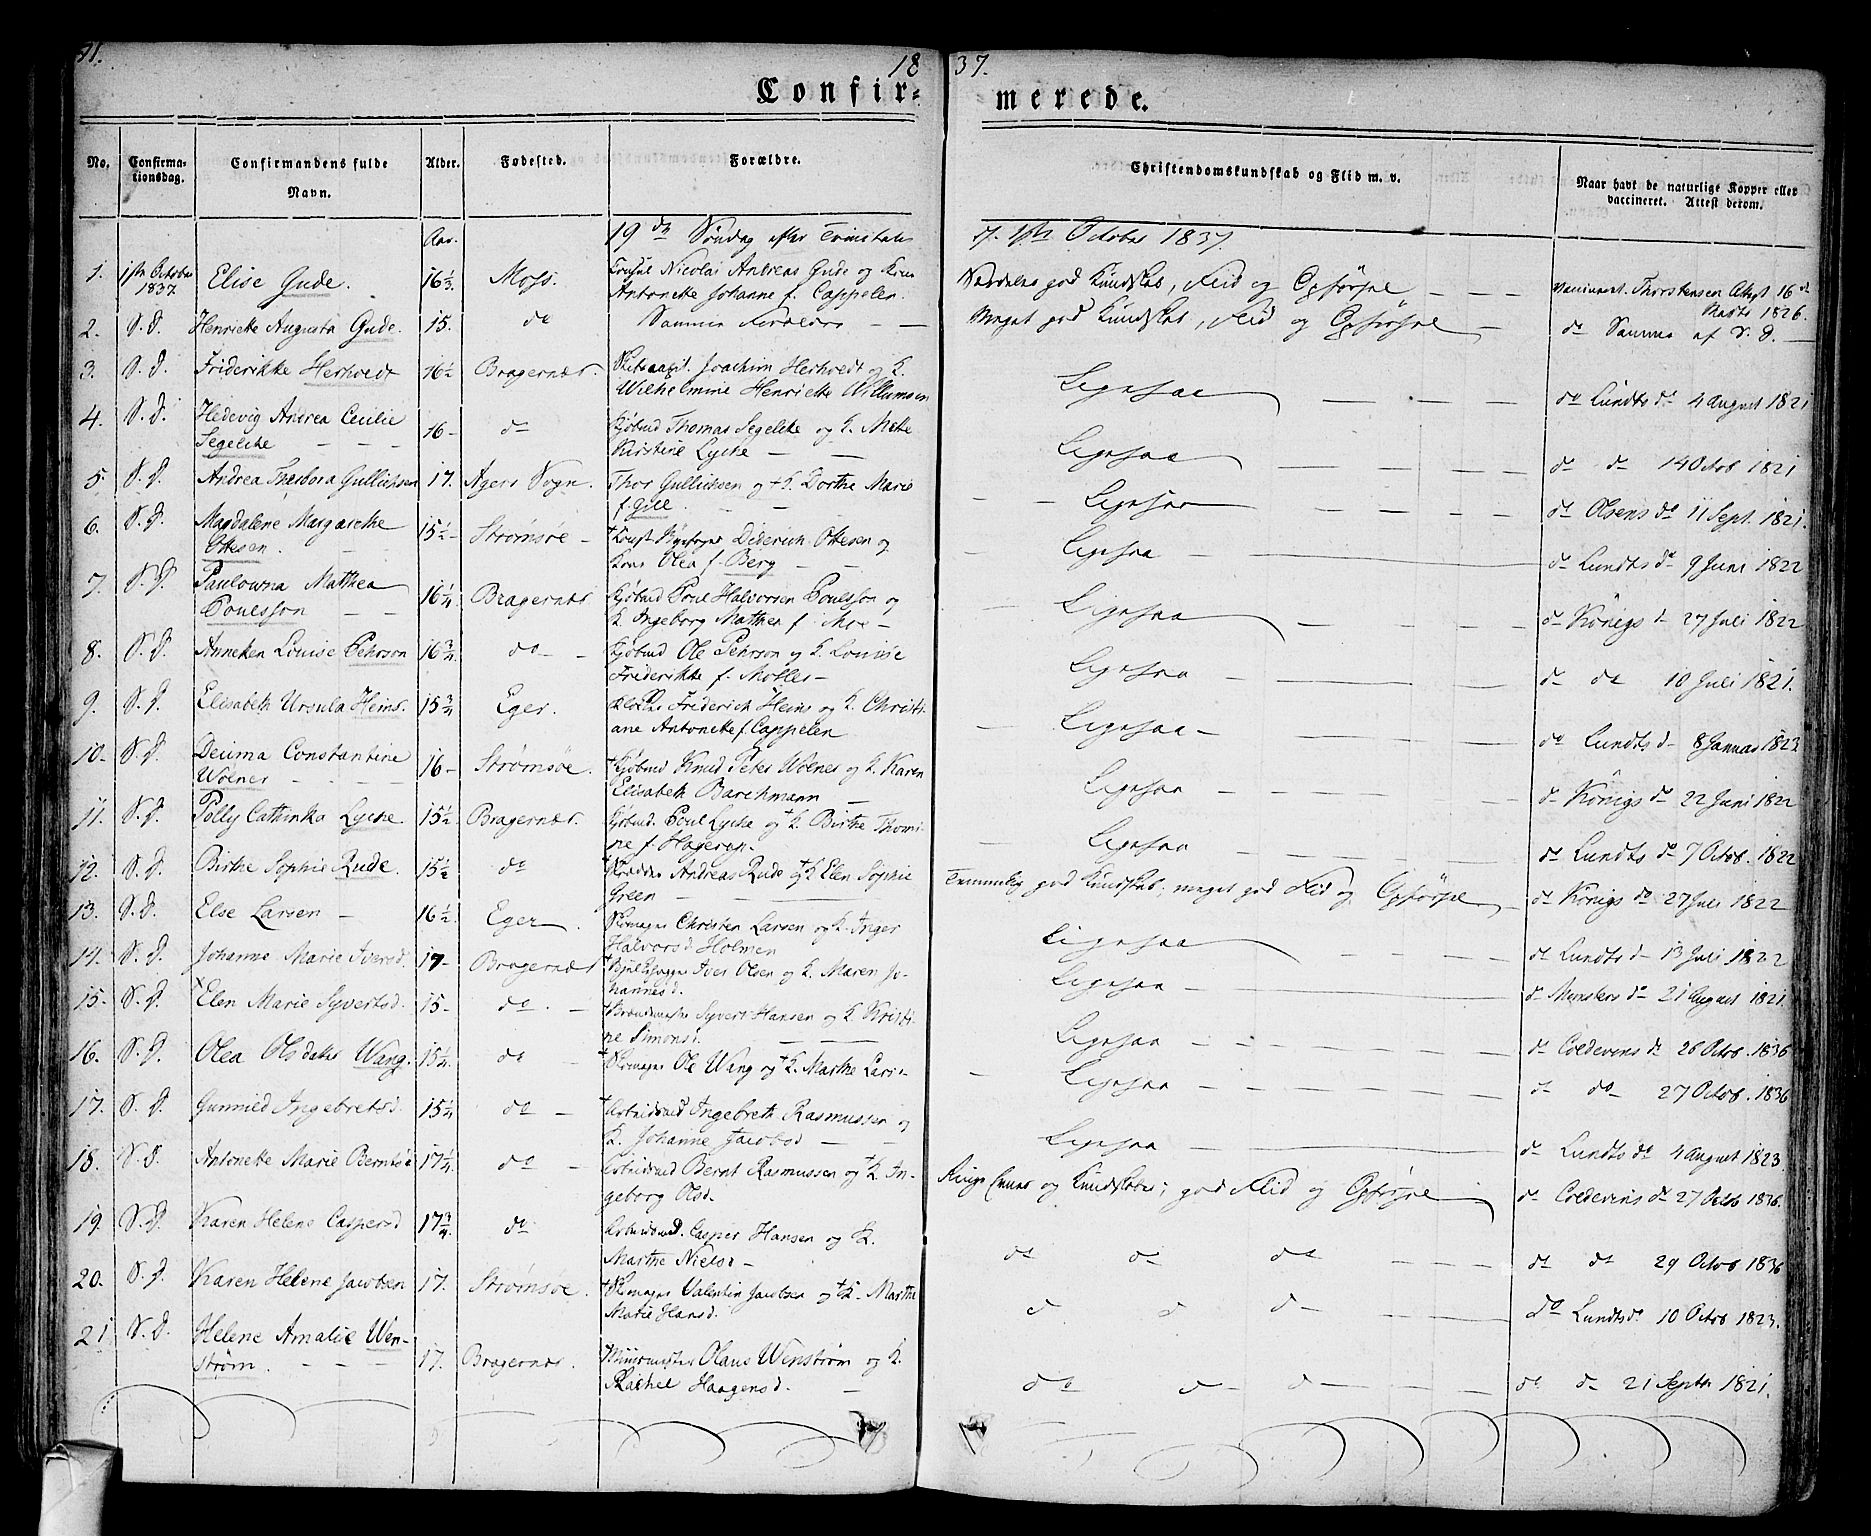 31.
18
37.
Confir-
merede.
No.
Confirma-
tionsdag.
Confirmandens fulde
Navn.
Alder.
Fødested.
Forældre.
Christendomskundskab og Flid m. v.
Naar havt de naturlige Kopper eller
vaccineret. Attest derom.
Aar.
19de Søndag efter Trinitatis
d. 1ste October 1837.
1. 1ste October 1837. Elise Gude. 16 1/3. Moss. Consul Nicolai Andreas Gude og Kone
Antonette Johanne f. Cappelen.
Særdeles god Kundskab, Flid og Opførsel
Vaccineret. Thorstensen Attest 16de
Marts 1826.
2. S. D. Henriette Augusta Gude. 15. do Samme Forældre
Meget god Kundskab, Flid og Opførsel
do Samme af S. D.
3. S. D. Friderikke Herhvedt 16 1/2 Bragernæs. Joachim Herhvedt og K.
Wilhelmine Henriette Willumsen
Ligesaa
do Lundts do 4 August 1821
4. S. D. Hedevig Andrea Cecilie
Segelcke
16 do Kjøbmd Thomas Segelcke og K. Mette
Kirstine Lycke
Ligesaa
do do 14 Octob 1821
5 S. D. Andrea Thorbora Gullichsen 17. Agers Sogn. Thor Gullichsen og + K. Dorthe Marie
f. Gill.
Ligesaa
do Olsens do 11 Sept. 1821.
6. S. D. Magdalene Margarethe
Ottesen.
15 1/2 Strømsøe Diderich Ottesen og
Kone Olea f. Berg
Ligesaa
do Lundts do 9 Juni 1822
7. S. D. Paulowna Mathea
Poulsson
16 1/4 Bragernæs. Kjøbmd Poul Halvorsen Poulsson og
K. Ingeborg Mathea f. Moe
Ligesaa
do Königs d 27 Juli 1822
8. S. D. Anneken Louise Pehrson 16 3/4. do Kjøbmd Ole Pehrson og K. Louise
Friderikke f. Møller
Ligesaa
do do 10 Juli 1821.
9. S. D. Elisabeth Ursula Heins. 15 3/4 Eger. Friderich Heins og K. Christi-
ane Antonette f. Cappelen
Ligesaa
do Lundts d 8 Januar 1823
10. S. D. Decima Constantine
Wølner
16 Strømsøe. + Kjøbmd Knud Peter Wølner og K. Karen
Elisabeth Barchmann
Ligesaa
do Königs do 22 Juni 1822
11. S. D. Polly Cathinka Lycke. 15 1/2 Bragernæs. Kjøbmd. Poul Lycke og + K. Birthe Thomi-
ne f. Hagerup.
Ligesaa
do Lundts do 7 Octob. 1822
12. S. D. Birthe Sophie Rude. 15 1/2 do + Skrædder Andreas Rude og + K Elen Sophie
Green
Temmelig god Kundskab, meget god Flid og Opførsel
do Königs do 27 Juli 1822
13. S. D. Else Larsen 16 1/2. Eger. Skomager Christen Larsen og K. Inger
Halvorsd Holmen
Ligesaa
do Lundts d 13 Juli 1822
14. S. D. Johanne Marie Iversd. 17 Bragernæs Iver Olsen og K. Maren Jo-
hannesd.
Ligesaa
do Munsters do 21 August 1821
15. S. D. Elen Marie Syvertsd. 15 do + Brændemester Syvert Hansen og K. Kristi-
ne Simonsd.
Ligesaa
do Coldevins do 26 Octob. 1836
16. S. D. Olea Olsdatter Wang. 15 1/4. do + Skomager Ole Wang og + K. Marthe Larsd
Ligesaa
do do 27 Octob. 1836
17. S. D. Gunnild Ingebretsd. 15 1/4 do + Arbeidsmd Ingebreth Rasmussen og
K. Johanne Jacobsd
Ligesaa
do Lundts do 4 August 1823
18. S. D. Antonette Marie Berntsd 17 1/4. do Arbeidsmd Bernt Rasmussen og + K. In-
geborg Olsd.
Ringe Evner og Kundskaber; god Flid og Opførsel
do Coldevins do 27 Octb 1836.
19. S. D. Karen Helene Caspersd 17 3/4. do Arbeidsmd. Casper Hansen og K.
Marthe Nielsd
do do do
do do 29 Octob 1836
20. S. D. Karen Helene Jacobsen 17. Strømsøe. + Skomager Valentin Jacobsen og + K. Marthe
Marie Hansd.
d d d
do Lundts do 10 Octob 1823.
21. S. D. Helene Amalie Wen-
strøm.
17. Bragernæs. + Muurmester Olaus Wenstrøm og K.
Rachel Haagensd.
do d d
do d 21 Septbr 1821.